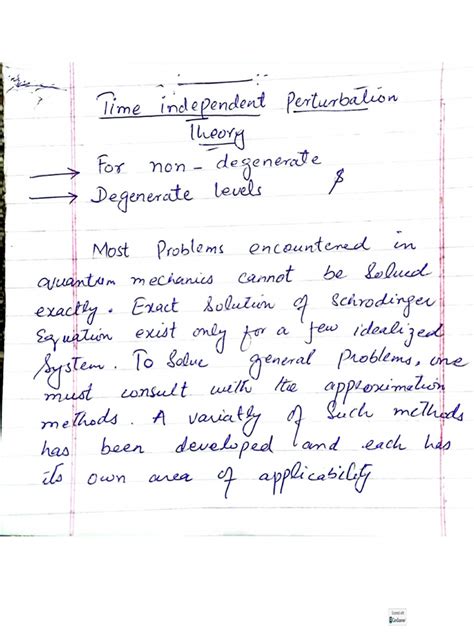 Time independent Perturbation
Theory
→ For non-degenerate
→ Degenerate levels
Most Problems encountered in
quantum mechanics cannot be Solved
exactly. Exact Solution of Schrodinger
Equation exist only for a few idealized
System. To Solve general Problems, one
must consult with the approximation
methods. A variatly of Such methods
has been developed and each has
its own area of applicability
Scanned with
CamScanner